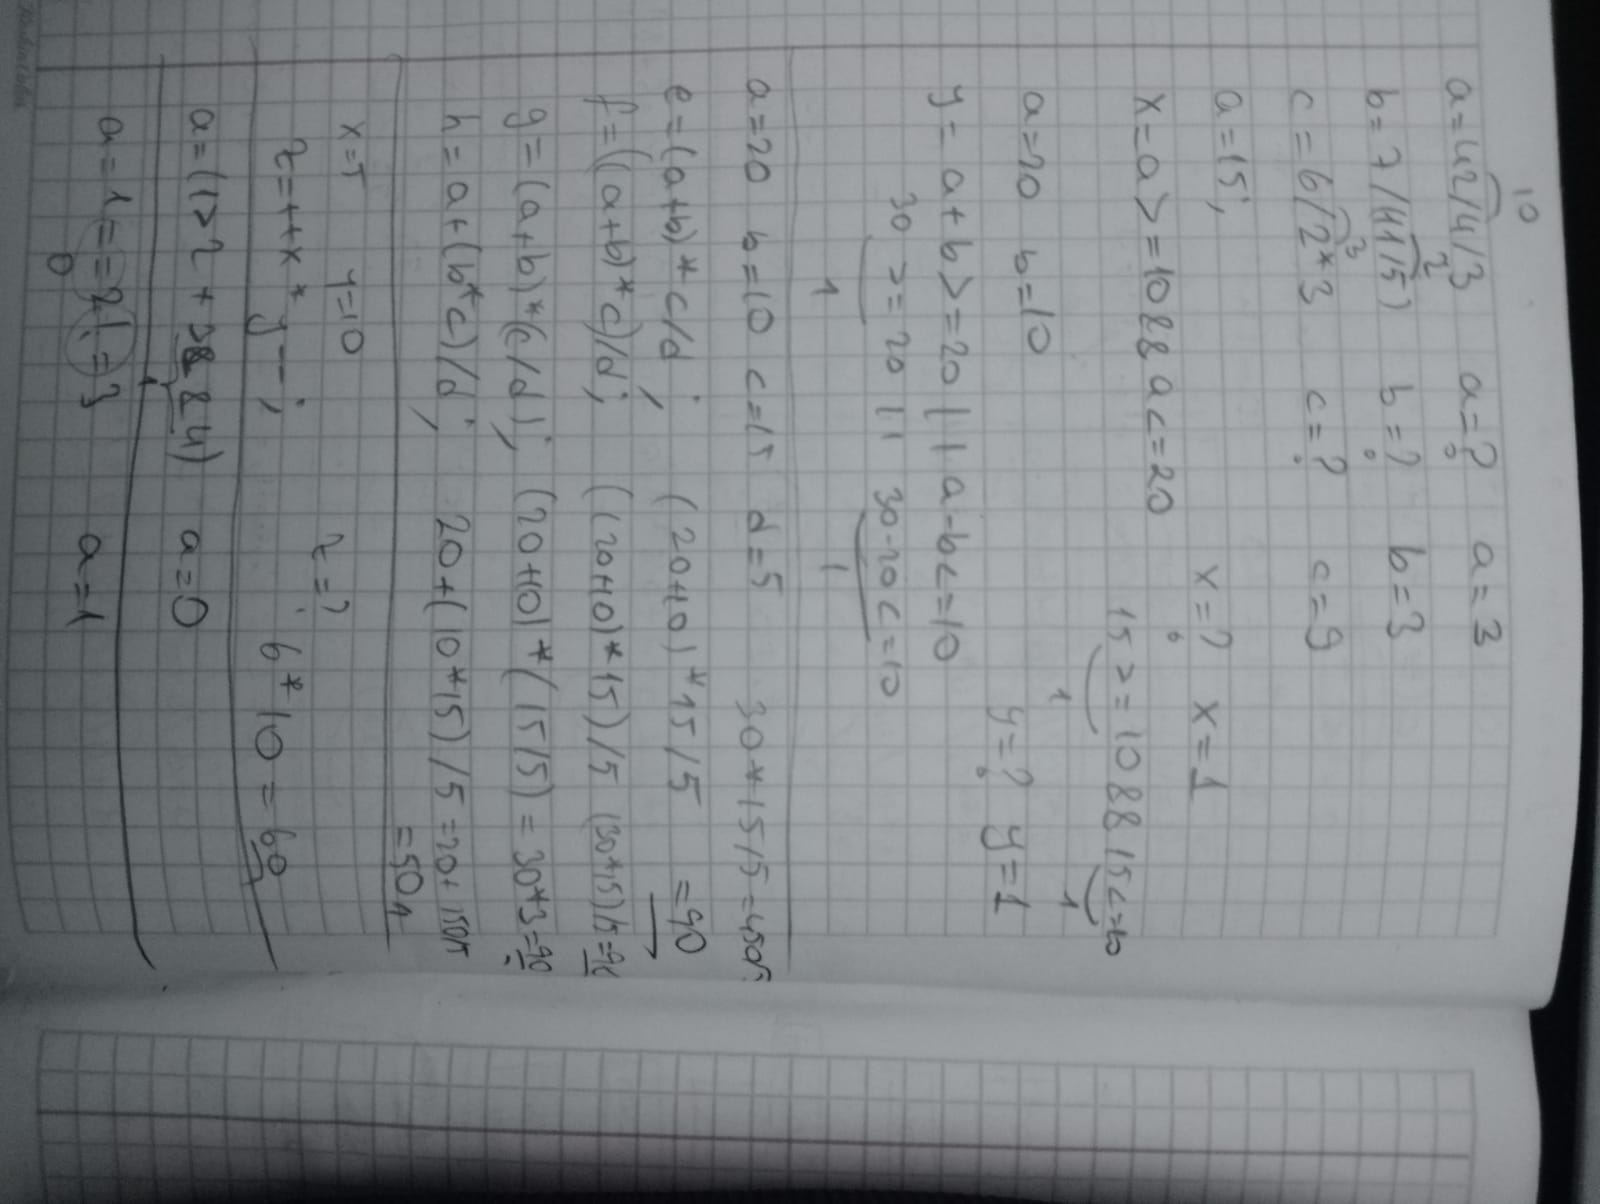 10
a=42/4/3 a=? a=3
2
b=7/(11/5) b=? b=3
3
c=6/2*3 c=? c=9
a=15; x=? x=1
x=a>=10&&a<=20 15>=10&&15<=20
1 1
a=20 b=10 y=? y=1
y=a+b>=20||a-b<=10
30>=20||30-20<=10
1 1
a=20 b=10 c=15 d=5 30*15/5=450/5
e=(a+b)*c/d; (20+10)*15/5 =90
f=((a+b)*c)/d; ((20+10)*15)/5 (30*15)/5=90
g=(a+b)*(c/d); (20+10)*(15/5)=30*3=90
h=a+(b*c)/d; 20+(10*15)/5=20+150/5
=50
x=5 y=10 z=?
z=++x*y--; 6*10=60
a=(1>2+3&&4) a=0
1
a=1==2!=3 a=1
0